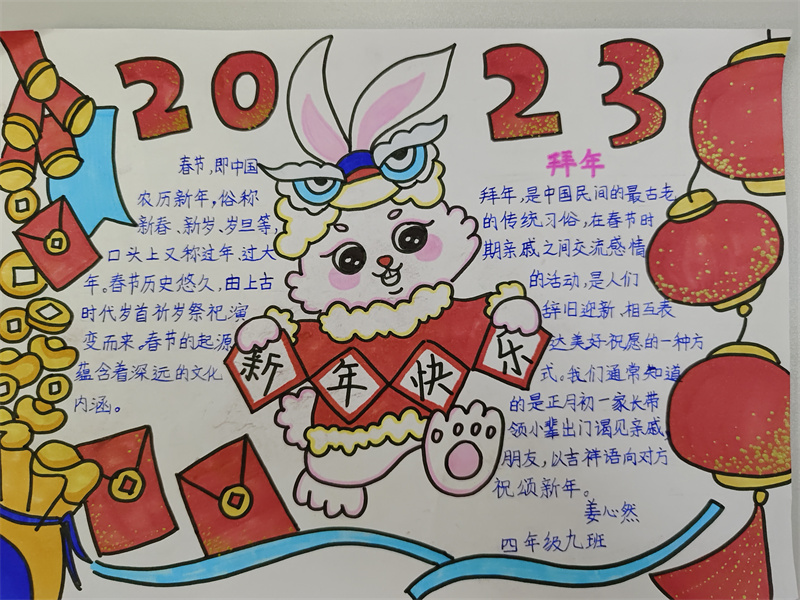 2023
春节，即中国
农历新年，俗称
新春、新岁、岁旦等，
口头上又称过年、过大
年。春节历史悠久，由上古
时代岁首祈岁祭祀演
变而来。春节的起源
蕴含着深远的文化
内涵。
新年快乐
拜年
拜年，是中国民间的最古老
的传统习俗，在春节时
期亲戚之间交流感情
的活动，是人们
辞旧迎新、相互表
达美好祝愿的一种方
式。我们通常知道
的是正月初一家长带
领小辈出门谒见亲戚，
朋友，以吉祥语向对方
祝颂新年。
姜心然
四年级九班